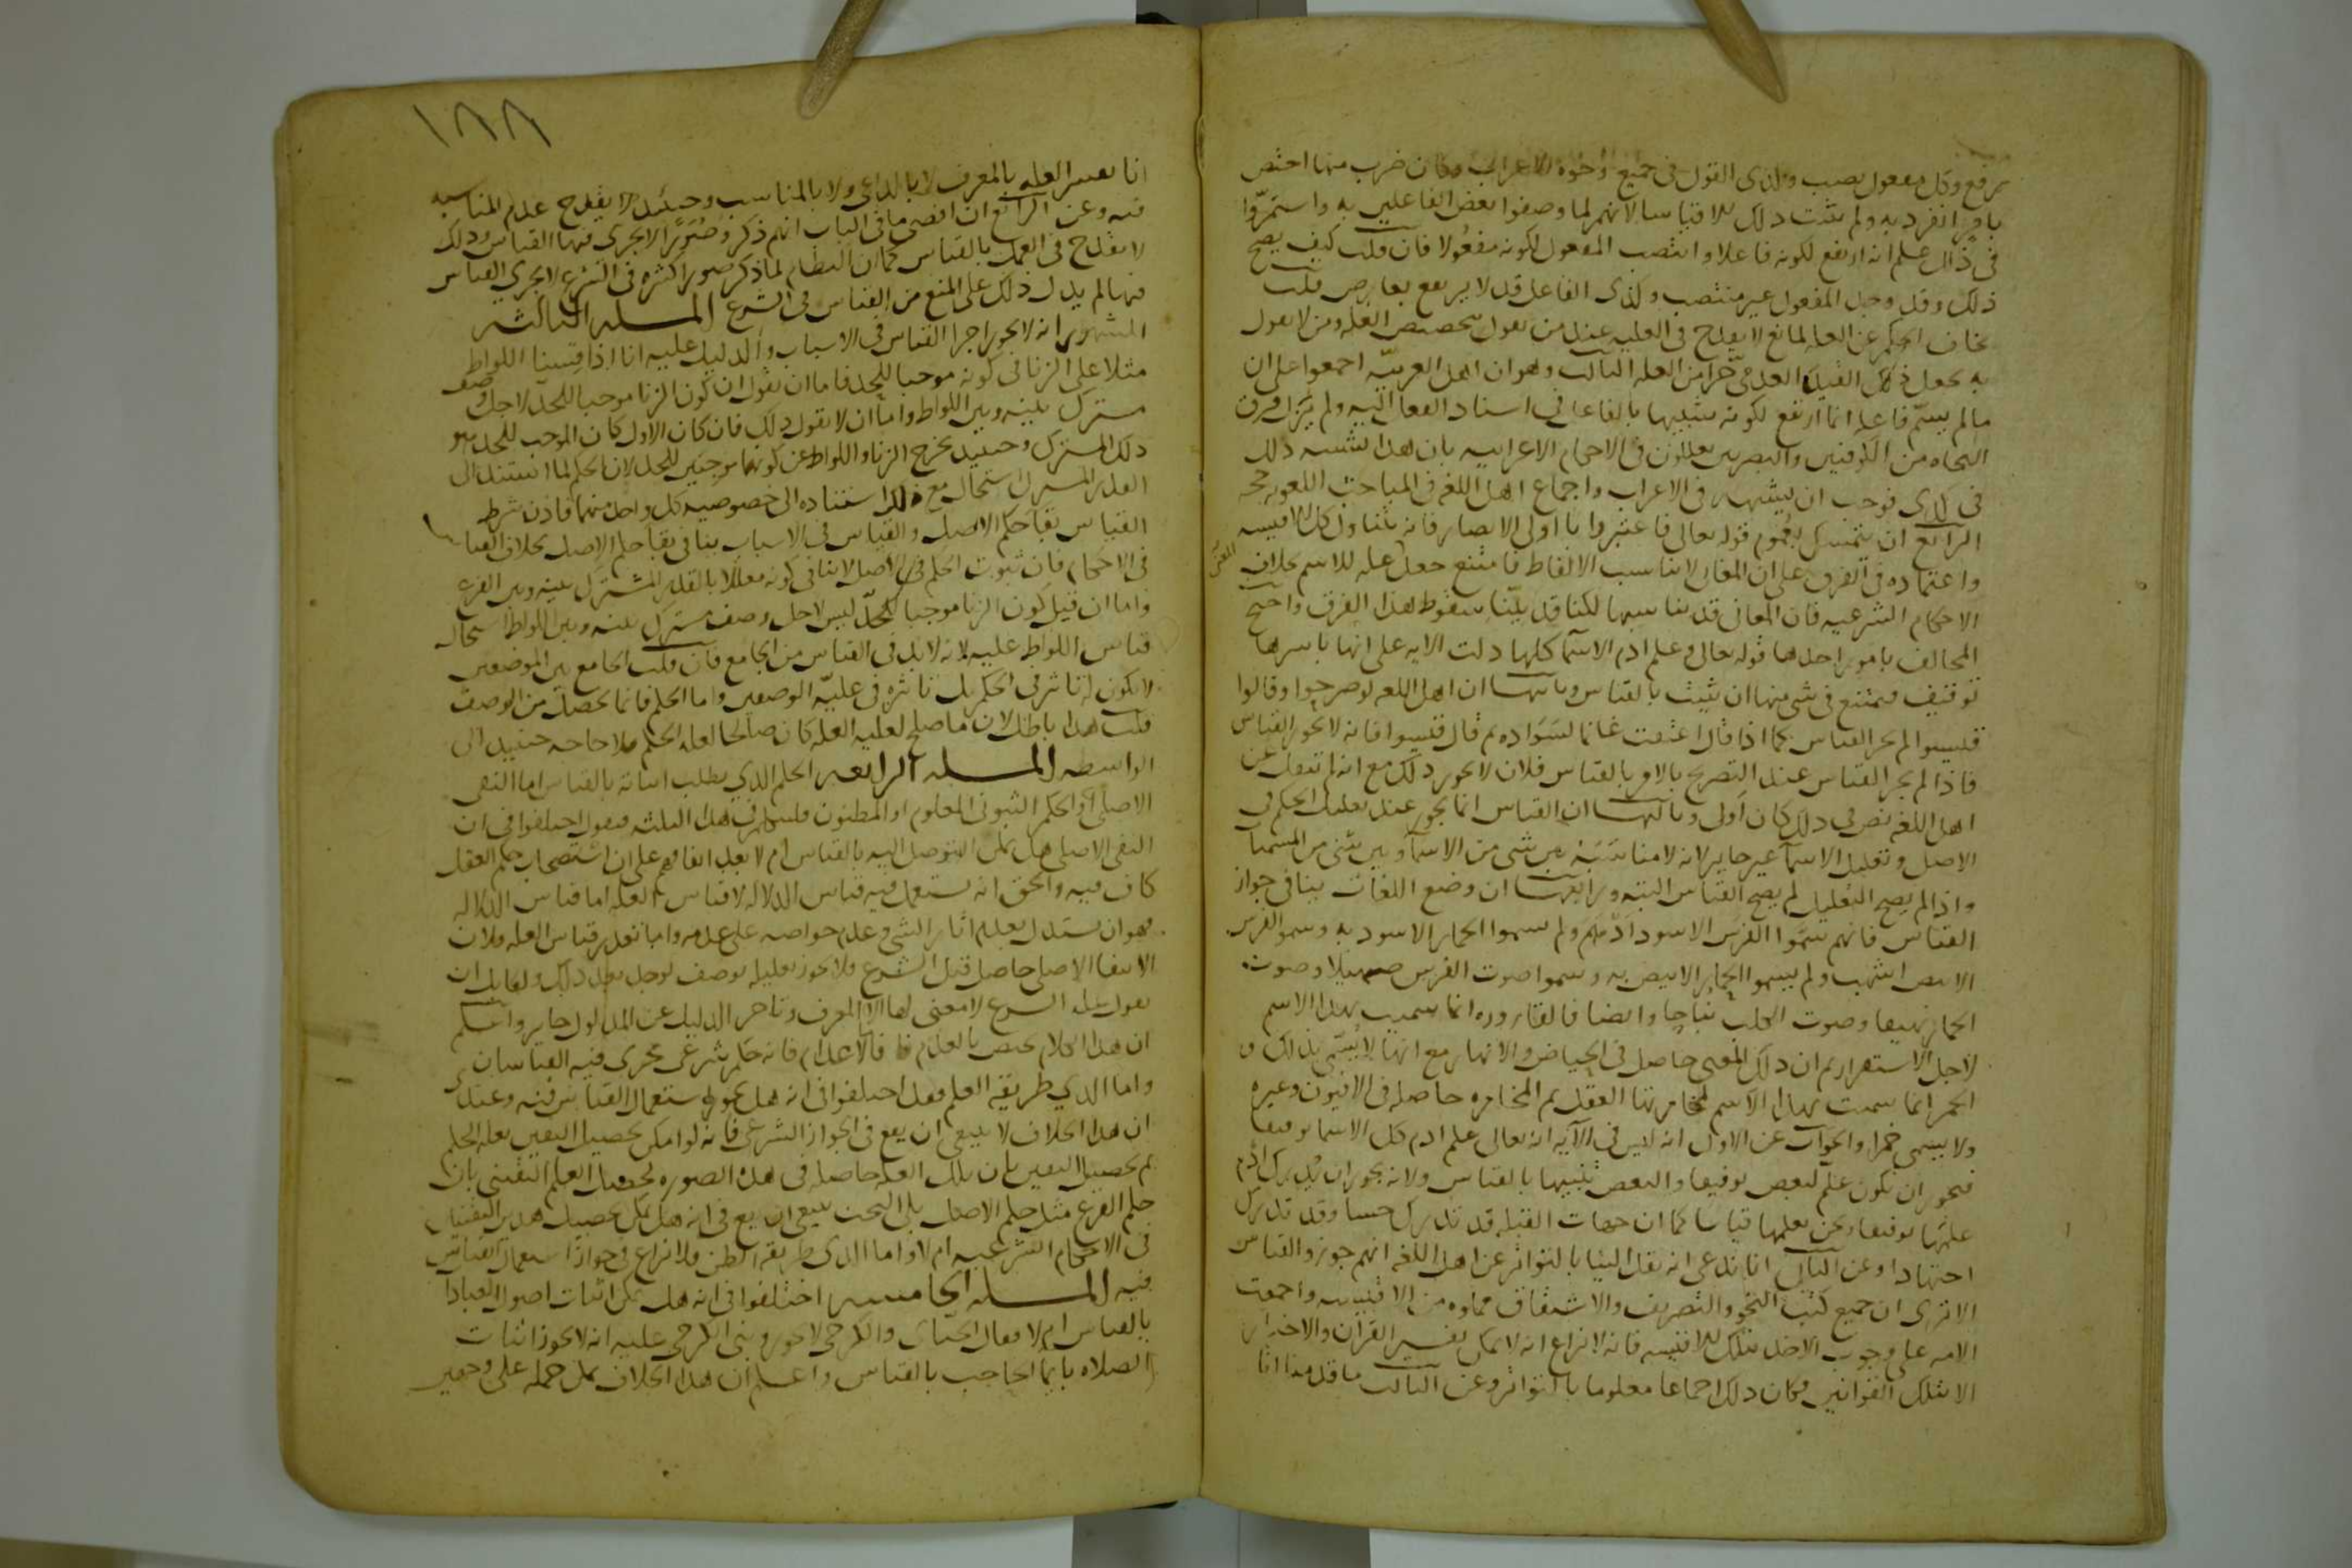 يرفع وكل مفعول ينصب وكذى القول فى جميع وجوه الاعراب وكان ضرب منها اختص
بامر انفرد به ولم يثبت ذلك الا قياسا لانهم لما وصفوا بعض الفاعلين به واستمروا
فى ذاك علم انه ارتفع لكونه فاعلا وانتصب المفعول لكونه مفعولا فان قلت كيف يصح
ذلك وقد وجد المفعول غير منتصب وكذى الفاعل قد لا يرتفع بعارض قلت
تخلف الحكم عن العله لمانع لا يقدح فى العليه عند من يقول بتخصيص العله ومن لا يقول
به يجعل ذلك القيد العدمى جزا من العله الثالث وهو ان اهل العربيه اجمعوا على ان
ما لم يسم فاعله انما ارتفع لكونه شبيها بالفاعل فى اسناد الفعل اليه ولم يزل فرق
النحاه من الكوفيين والبصريين يعللون فى الاحكام الاعرابيه بان هذا يشبه ذلك
فى كذى فوجب ان يشبهه فى الاعراب واجماع اهل اللغه فى المباحث اللغويه حجه
الرابع ان يتمسك بعموم قوله تعالى فاعتبروا يا اولى الابصار فانه يتناول كل الاقيسه
واعتماده فى الفرق على ان المعانى لا تناسب الالفاظ فامتنع جعل عله للاسم بخلاف
الاحكام الشرعيه فان المعانى قد تناسبها لكنا قد بينا سقوط هذا الفرق واحتج
المخالف بامور احدها قوله تعالى وعلم ادم الاسما كلها دلت الايه على انها باسرها
توقيف فيمتنع فى شى منها ان يثبت بالقياس وثانيها ان اهل اللغه لو صرحوا وقالوا
قيسوا لم يجز القياس كما اذا قال اعتقت غانما لسواده ثم قال قيسوا فانه لا يجوز القياس
فاذا لم يجز القياس عند التصريح بالامر بالقياس فلان لا يجوز ذلك مع انه لم ينقل عن
اهل اللغه نص فى ذلك كان اولى وثالثها ان القياس انما يجوز عند تعليل الحكم فى
الاصل وتعليل الاسما غير جايز لانه لا مناسبه بين شى من الاسما وبين شى من المسميات
واذا لم يصح التعليل لم يصح القياس البته ورابعها ان وضع اللغات ينافى جواز
القياس فانهم سموا الفرس الاسود ادهم ولم يسموا الحمار الاسود به وسموا الفرس
الابيض اشهب ولم يسموا الحمار الابيض به وسموا صوت الفرس صهيلا وصوت
الحمار نهيقا وصوت الكلب نباحا وايضا فالقاروره انما سميت بهذا الاسم
لاجل الاستقرار ثم ان ذلك المعنى حاصل فى الحياض والانهار مع انها لا تسمى بذلك و
الخمر انما سميت بهذا الاسم لمخامرتها العقل ثم المخامره حاصله فى الافيون وغيره
ولا يسمى خمرا والجواب عن الاول انه ليس فى الآيه انه تعالى علم ادم كل الاسما توقيفا
فيجوز ان يكون علم البعض توقيفا والبعض تنبيها بالقياس ولانه يجوز ان يدرك ادم
علمها توقيفا ونحن نعلمها قياسا كما ان جهات القبله قد تدرك حسا وقد تدرك
اجتهادا وعن الثانى انا ندعى انه نقل الينا بالتواتر عن اهل اللغه انهم جوزوا القياس
الا ترى ان جميع كتب النحو والتصريف والاشتقاق مملوه من الاقيسه واجمعت
الامه على وجوب الاخذ بتلك الاقيسه فانه لا نزاع انه لا يمكن تفسير القرآن والاخبار
الا بتلك القوانين وكان ذلك اجماعا معلوما بالتواتر وعن الثالث ما قدمنا انا
١٨٨
انا نفسر العله بالمعرف لا بالداعى ولا بالمناسب وحينئذ لا يقدح عدم المناسبه
فيه وعن الرابع ان اقصى ما فى الباب انهم ذكروا صورا لا يجرى فيها القياس وذلك
لا يقدح فى العمل بالقياس كما ان النظام لما ذكر صورا كثيره فى الشرع لا يجرى القياس
فيها لم يدل ذلك على المنع من القياس فى الشرع المسله الثالثه
المشهور انه لا يجوز اجرا القياس فى الاسباب والدليل عليه انا اذا قسنا اللواط
مثلا على الزنا فى كونه موجبا للحد فاما ان نقول ان كون الزنا موجبا للحد لاجل وصف
مشترك بينه وبين اللواط واما ان لا نقول ذلك فان كان الاول كان الموجب للحد هو
ذلك المشترك وحينئذ يخرج الزنا واللواط عن كونهما موجبين للحد لان الحكم لما استند الى
القدر المشترك استحال مع ذلك استناده الى خصوصيه كل واحد منهما فاذن شرط
القياس بقا حكم الاصل والقياس فى الاسباب ينافى بقا حكم الاصل بخلاف القياس
فى الاحكام فان ثبوت الحكم فى الاصل لا ينافى كونه معللا بالقدر المشترك بينه وبين الفرع
واما ان قيل كون الزنا موجبا للحد ليس لاجل وصف مشترك بينه وبين اللواط استحال
قياس اللواط عليه لانه لا بد فى القياس من الجامع فان قلت الجامع بين الموضعين
لا يكون له تاثير فى الحكم بل تاثيره فى عليه الوصفين واما الحكم فانما يحصل من الوصف
قلت هذا باطل لان ما صلح لعليه العله كان صالحا لعله الحكم فلا حاجه حينئذ الى
الواسطه المسله الرابعه الحكم الذي يطلب اثباته بالقياس اما النفى
الاصلى او الحكم الثبوتى المعلوم او المظنون فلنتكلم فى هذه الثلثه فنقول اختلفوا فى ان
النفى الاصلى هل يمكن التوصل اليه بالقياس ام لا بعد اتفاقهم على ان استصحاب حكم العقل
كاف فيه والحق انه يستعمل فيه قياس الدلاله لا قياس العله اما قياس الدلاله
فهو ان يستدل بعدم اثار الشى وعدم خواصه على عدمه واما تعذر قياس العله فلان
الانتفا الاصلى حاصل قبل الشرع فلا يجوز تعليله بوصف يوجد بعد ذلك ولقايل ان
يقول علل الشرع لا معنى لها الا المعرف وتاخر الدليل عن المدلول جايز واعلم
ان هذا الكلام يختص بالعدم فاما الاعدام فانه حكم شرعى يجرى فيه القياسان
واما الذي طريقه العلم فقد اختلفوا فى انه هل يجوز استعمال القياس فيه وعندى
ان هذا الخلاف لا ينبغى ان يقع فى الجواز الشرعى فانه لو امكن تحصيل اليقين بعله الحكم
ثم تحصيل اليقين بان تلك العله حاصله فى هذه الصوره لحصل العلم اليقينى بان
حكم الفرع مثل حكم الاصل بلى البحث ينبغى ان يقع فى انه هل يمكن تحصيل هذين اليقينين
فى الاحكام الشرعيه ام لا واما الذى طريقه الظن فلا نزاع فى جواز استعمال القياس
فيه المسله الخامسه اختلفوا فى انه هل يمكن اثبات اصول العبادات
بالقياس ام لا فقال الجبائى والكرخى لا يجوز وبنى الكرخى عليه انه لا يجوز اثبات
الصلاه بايما الحاجب بالقياس واعلم ان هذا الخلاف يمكن حمله على وجهين